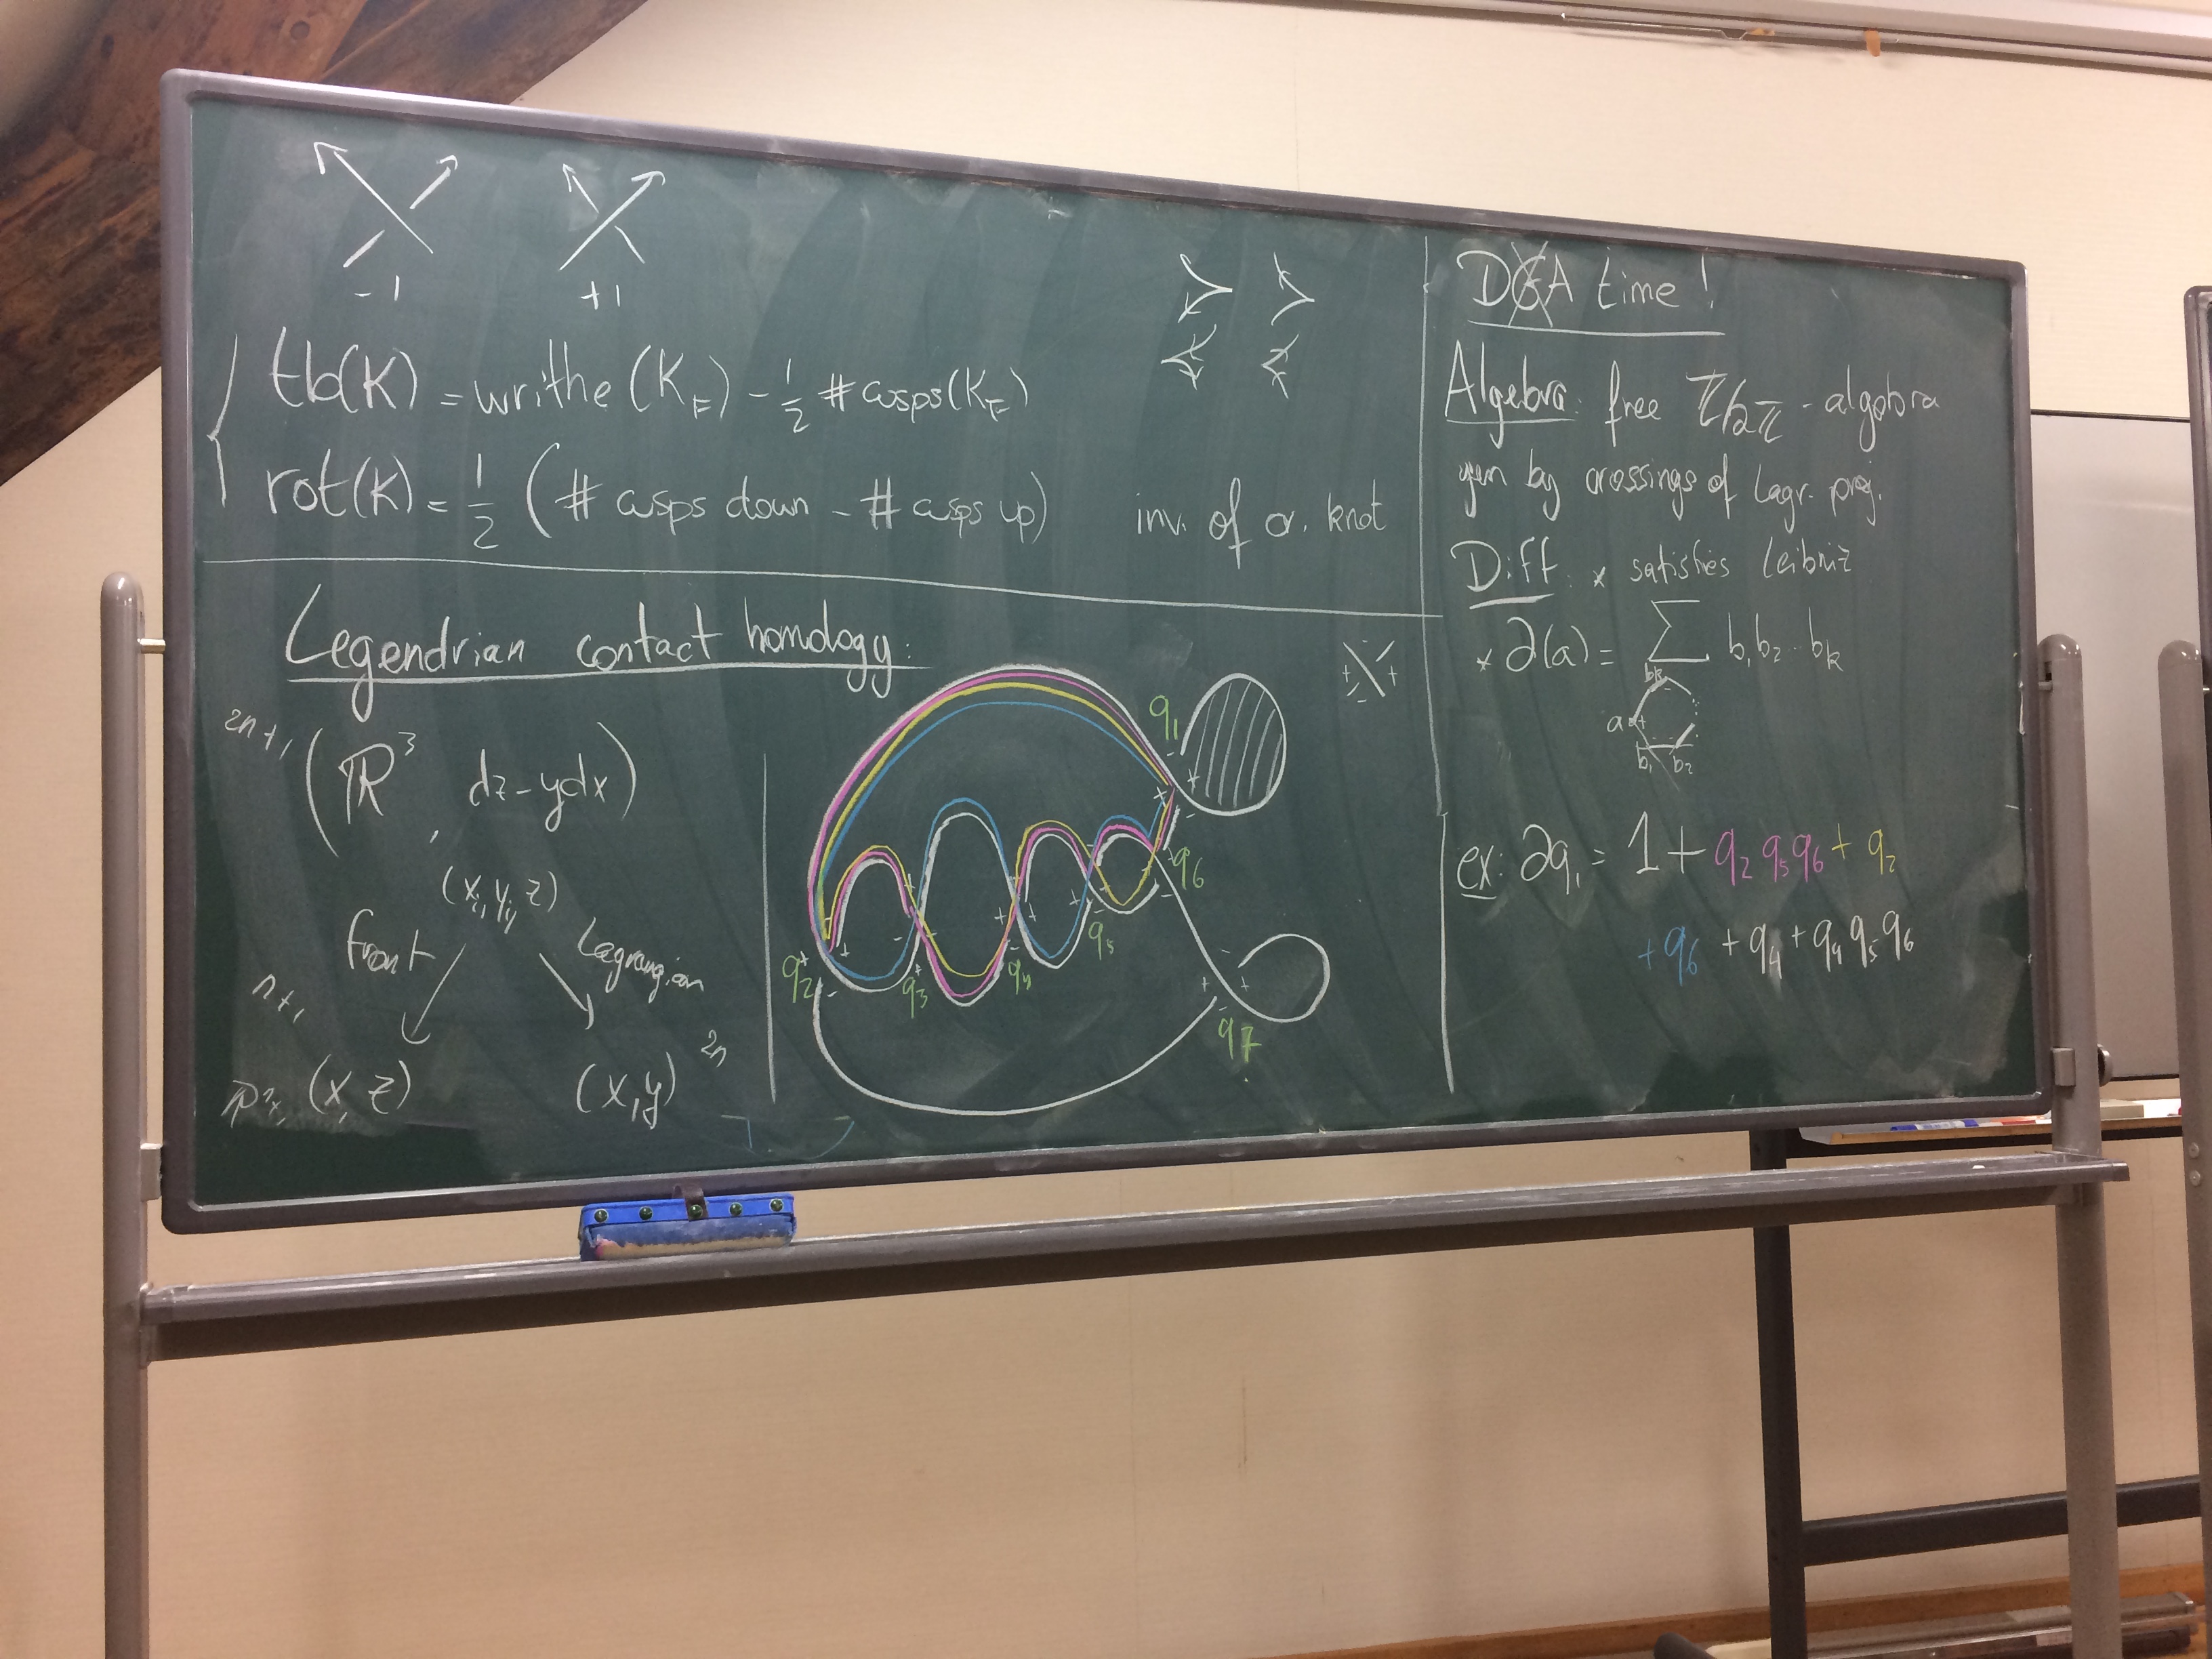 -1 +1
tb(K) = writhe (K_F) - 1/2 # cusps(K_F)
rot(K) = 1/2 (# cusps down - # cusps up) inv. of or. knot
Legendrian contact homology:
2n+1
(ℝ³, dz-ydx)
(x_i, y_i, z)
Front Lagrangian
n+1 2n
(x, z) (x,y)
q1
q2 q3 q4 q5 q6
q7
DGA time!
Algebra: free ℤ/2ℤ-algebra
gen by crossings of Lagr. proj.
Diff: * satisfies Leibniz
* ∂(a) = ∑ b₁b₂...b_k
b_k
a +
b₁ b₂
ex: ∂q₁ = 1 + q₂q₅q₆ + q₂
+ q₆ + q₄ + q₄q₅q₆